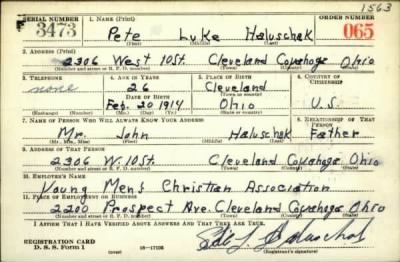 1563
SERIAL NUMBER 1. NAME (Print) ORDER NUMBER
3473 Pete Luke Haluschak 065
(First) (Middle) (Last)
2. ADDRESS (Print)
2306 West 10 St. Cleveland Cuyahoga Ohio
(Number and street or R. F. D. number) (Town) (County) (State)
3. TELEPHONE 4. AGE IN YEARS 5. PLACE OF BIRTH 6. COUNTRY OF CITIZENSHIP
none 26 Cleveland
DATE OF BIRTH (Town or county)
Feb. 20 1914 Ohio U.S.
(Exchange) (Number) (Mo.) (Day) (Yr.) (State or country)
7. NAME OF PERSON WHO WILL ALWAYS KNOW YOUR ADDRESS 8. RELATIONSHIP OF THAT PERSON
Mr. John Haluschak Father
(Mr., Mrs., Miss) (First) (Middle) (Last)
9. ADDRESS OF THAT PERSON
2306 W. 10 St. Cleveland Cuyahoga Ohio
(Number and street or R. F. D. number) (Town) (County) (State)
10. EMPLOYER'S NAME
Young Men's Christian Association
11. PLACE OF EMPLOYMENT OR BUSINESS
2200 Prospect Ave. Cleveland Cuyahoga Ohio
(Number and street or R. F. D. number) (Town) (County) (State)
I AFFIRM THAT I HAVE VERIFIED ABOVE ANSWERS AND THAT THEY ARE TRUE.
REGISTRATION CARD
D. S. S. Form 1 (over) 16-17105
Pete L. Haluschak
(Registrant's signature)